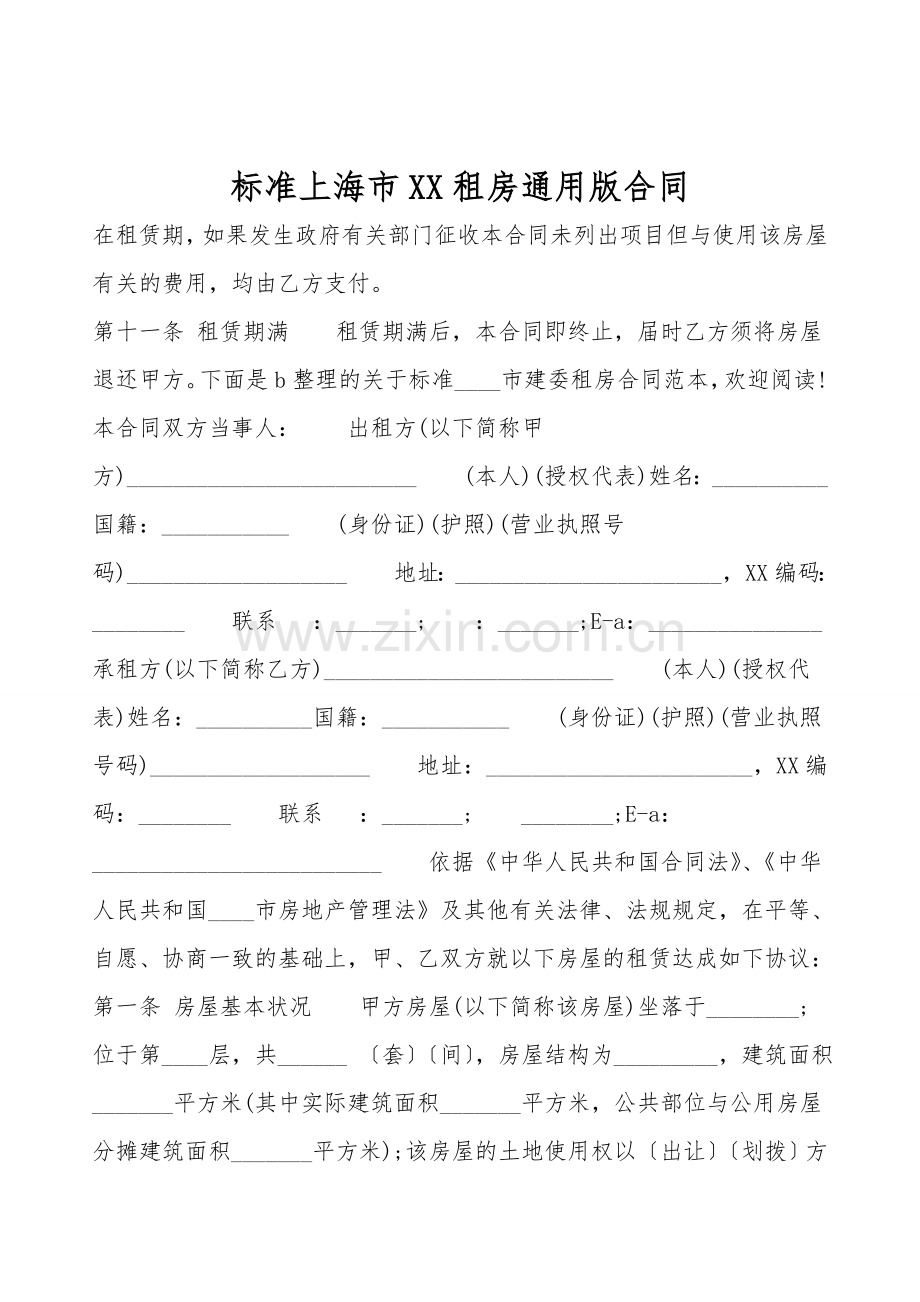 标准上海市XX租房通用版合同
在租赁期,如果发生政府有关部门征收本合同未列出项目但与使用该房屋
有关的费用，均由乙方支付。
第十一条 租赁期满　　租赁期满后，本合同即终止，届时乙方须将房屋
退还甲方。下面是b整理的关于标准____市建委租房合同范本,欢迎阅读!
本合同双方当事人：　　出租方(以下简称甲
方)_________________________　　(本人)(授权代表)姓名：__________
国籍：___________　　(身份证)(护照)(营业执照号
码)___________________　　地址：_______________________，XX编码：
________　　联系　：_______;　　：_______;E-a：_______________
承租方(以下简称乙方)_________________________　　(本人)(授权代
表)姓名：__________国籍：___________　　(身份证)(护照)(营业执照
号码)___________________　　地址：_______________________，XX编
码：________　　联系　：_______;　　________;E-a：
_________________________　　依据《中华人民共和国合同法》、《中华
人民共和国____市房地产管理法》及其他有关法律、法规规定，在平等、
自愿、协商一致的基础上，甲、乙双方就以下房屋的租赁达成如下协议：
第一条 房屋基本状况　　甲方房屋(以下简称该房屋)坐落于________;
位于第____层，共______ 〔套〕〔间〕，房屋结构为_________，建筑面积
_______平方米(其中实际建筑面积_______平方米，公共部位与公用房屋
分摊建筑面积_______平方米);该房屋的土地使用权以〔出让〕〔划拨〕方
www.zixin.com.cn